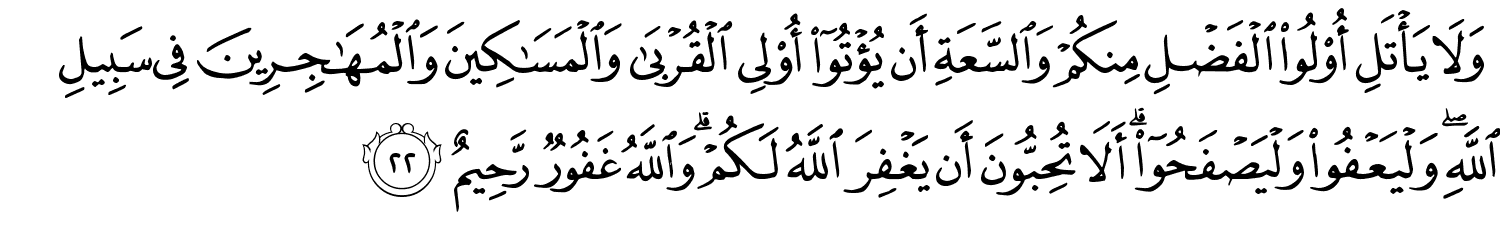 وَلَا يَأْتَلِ أُو۟لُوا۟ ٱلْفَضْلِ مِنكُمْ وَٱلسَّعَةِ أَن يُؤْتُوٓا۟ أُو۟لِى ٱلْقُرْبَىٰ وَٱلْمَسَـٰكِينَ وَٱلْمُهَـٰجِرِينَ فِى سَبِيلِ
ٱللَّهِ ۖ وَلْيَعْفُوا۟ وَلْيَصْفَحُوٓا۟ ۗ أَلَا تُحِبُّونَ أَن يَغْفِرَ ٱللَّهُ لَكُمْ ۗ وَٱللَّهُ غَفُورٌ رَّحِيمٌ ٢٢